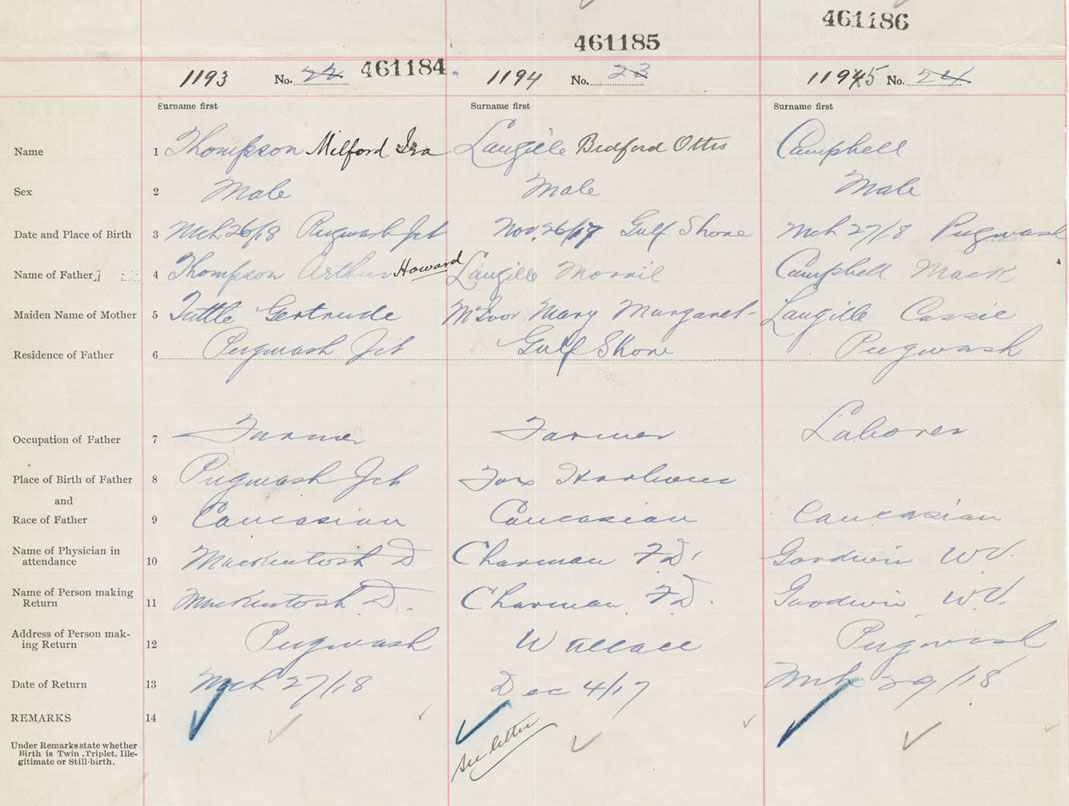 461186
461185
1193 No. 22 461184. 1194 No. 23 11945 No. 24
Surname first Surname first Surname first
Name 1 Thompson Milford Ira Langille Bedford Ottis Campbell
Sex 2 Male Male Male
Date and Place of Birth 3 Mch 26/18 Pugwash Jct Nov. 26/17 Gulf Shore Mch 27/18 Pugwash
Name of Father 4 Thompson Arthur Howard Langille Campbell Mack
Maiden Name of Mother 5 Tuttle Gertrude McIvor Mary Margaret Langille Cassie
Residence of Father 6 Pugwash Jct Gulf Shore Pugwash
Occupation of Father 7 Farmer Farmer Laborer
Place of Birth of Father 8 Pugwash Jct Fox Harbour
and
Race of Father 9 Caucasian Caucasian Caucasian
Name of Physician in
attendance 10 Mackintosh D Charman F.D. Goodwin W.V.
Name of Person making
Return 11 Mackintosh D. Charman F.D. Goodwin W.V.
Address of Person mak-
ing Return 12 Pugwash Wallace Pugwash
Date of Return 13 Mch 27/18 Dec 4/17 Mch 29/18
REMARKS 14
see letter
Under Remarks state whether
Birth is Twin, Triplet, Ille-
gitimate or Still-birth.